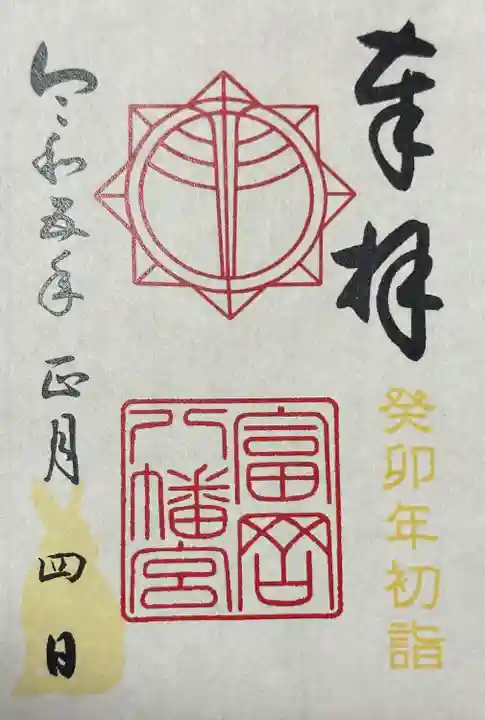 奉拝
癸卯年初詣
富岡
八幡宮
令和五年 正月 四 日